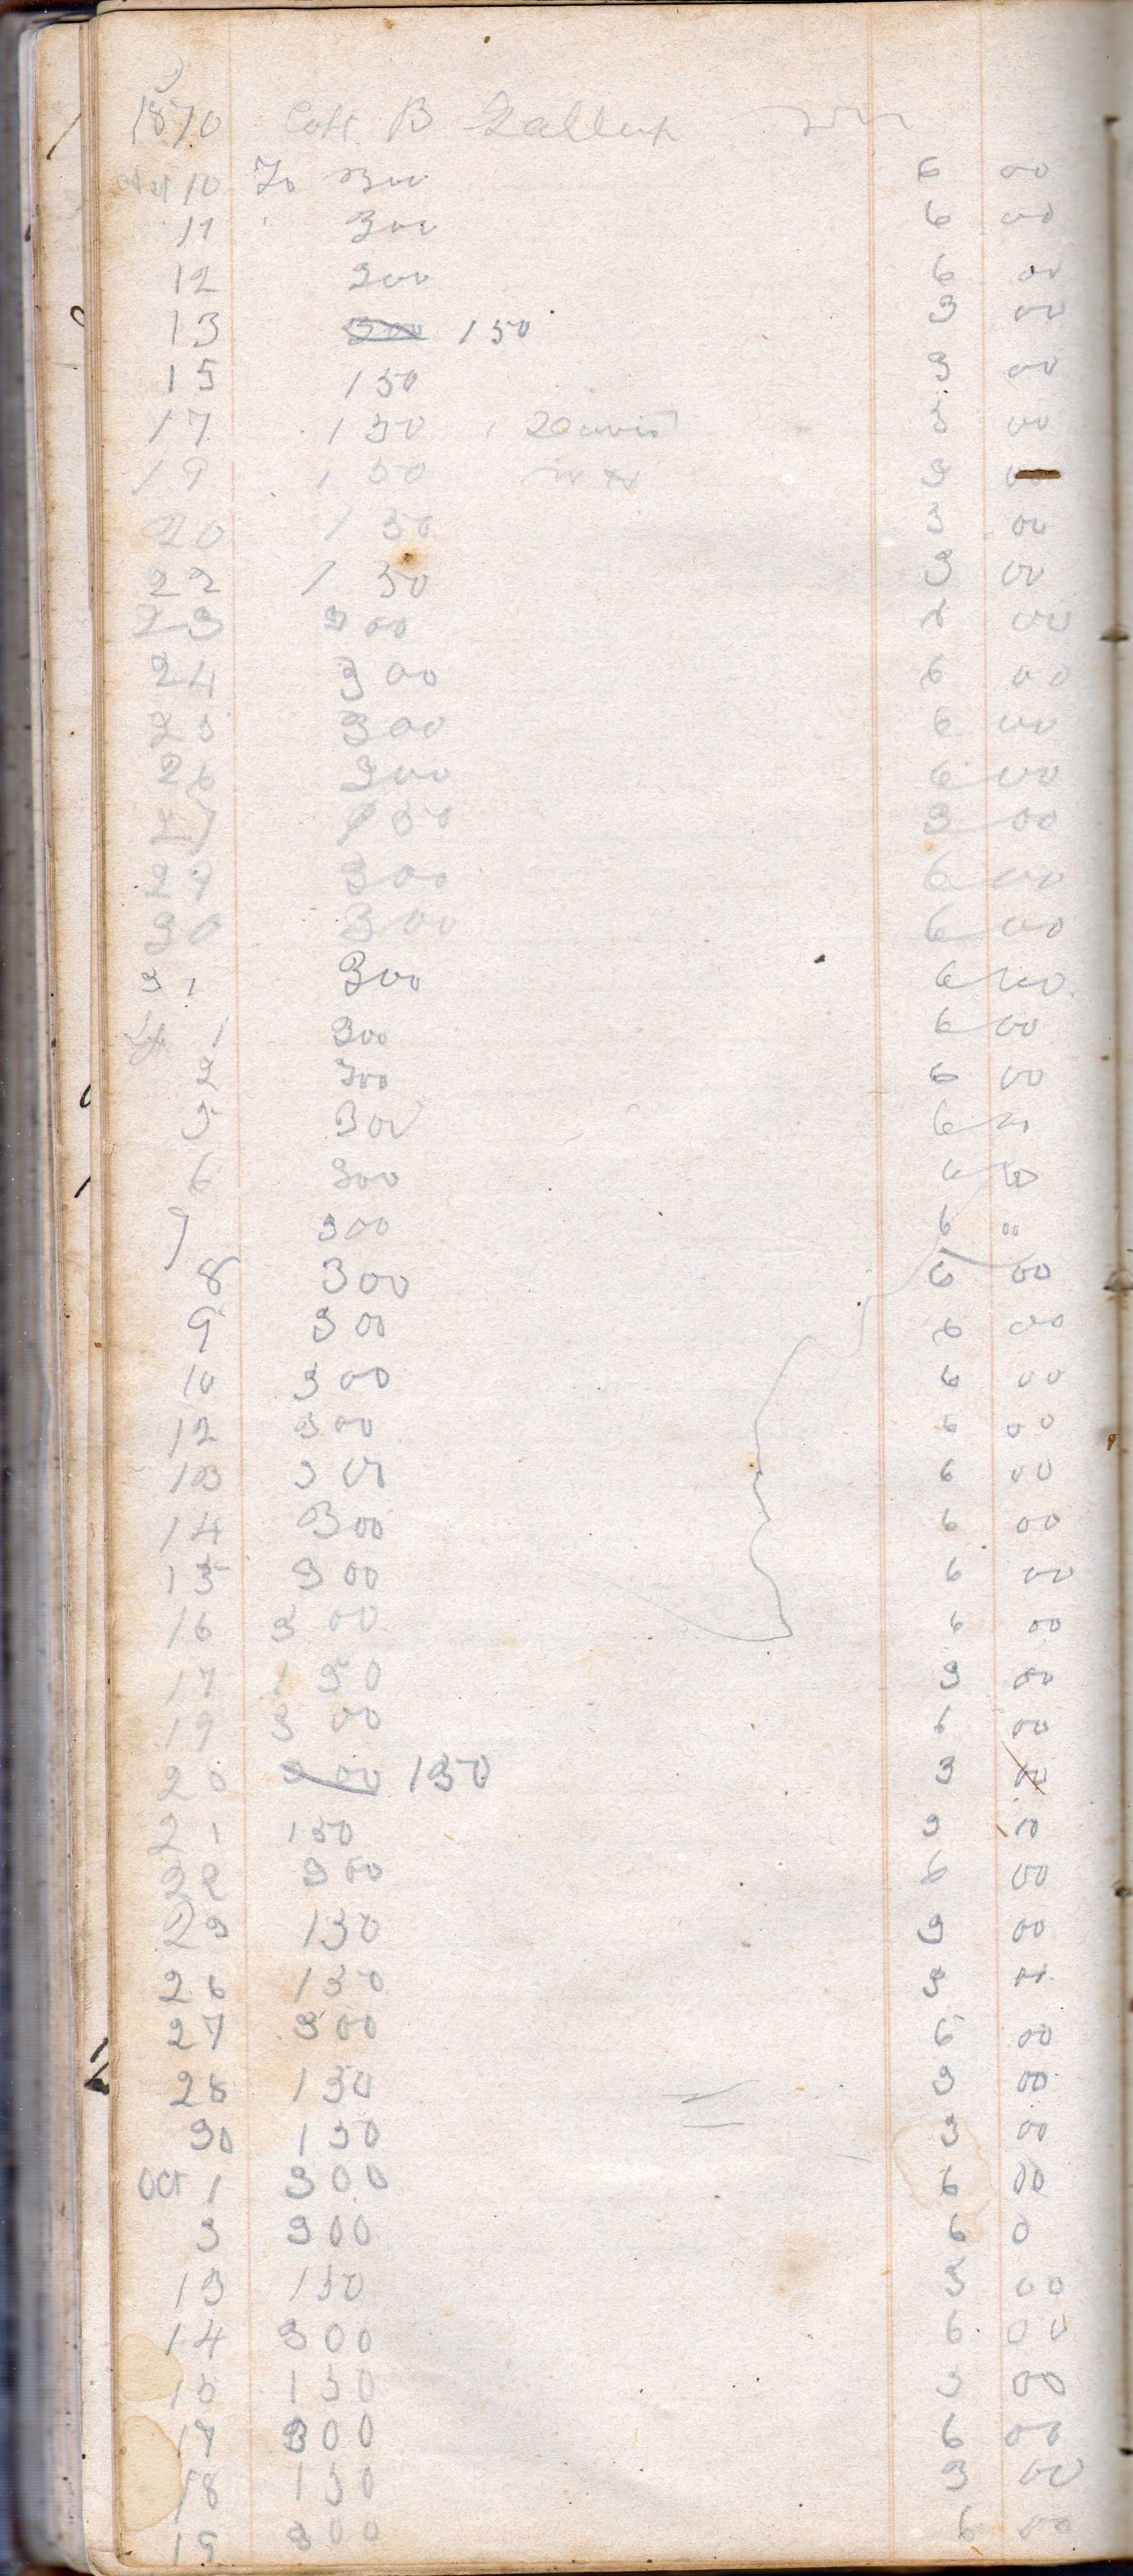 1870 B Gallup
10 To 300 6 00
11 " 300 6 00
12 300 6 00
13 300 150 3 00
15 150 3 00
17 150 3 00
19 150 3 00
20 150 3 00
22 150 3 00
23 300 6 00
24 300 6 00
25 300 6 00
26 300 6 00
27 150 3 00
29 300 6 00
30 300 6 00
31 300 6 00
1 300 6 00
2 300 6 00
5 300 6 00
6 300 6 00
7 300 6 00
8 300 6 00
9 300 6 00
10 300 6 00
12 300 6 00
13 300 6 00
14 300 6 00
15 300 6 00
16 300 6 00
17 150 3 00
19 300 6 00
20 300 150 3 00
21 150 3 00
22 300 6 00
23 150 3 00
26 150 3 00
27 300 6 00
28 150 3 00
30 150 3 00
Oct 1 300 6 00
3 300 6 0
13 150 3 00
14 300 6 00
15 150 3 00
17 300 6 00
18 150 3 00
19 300 6 00